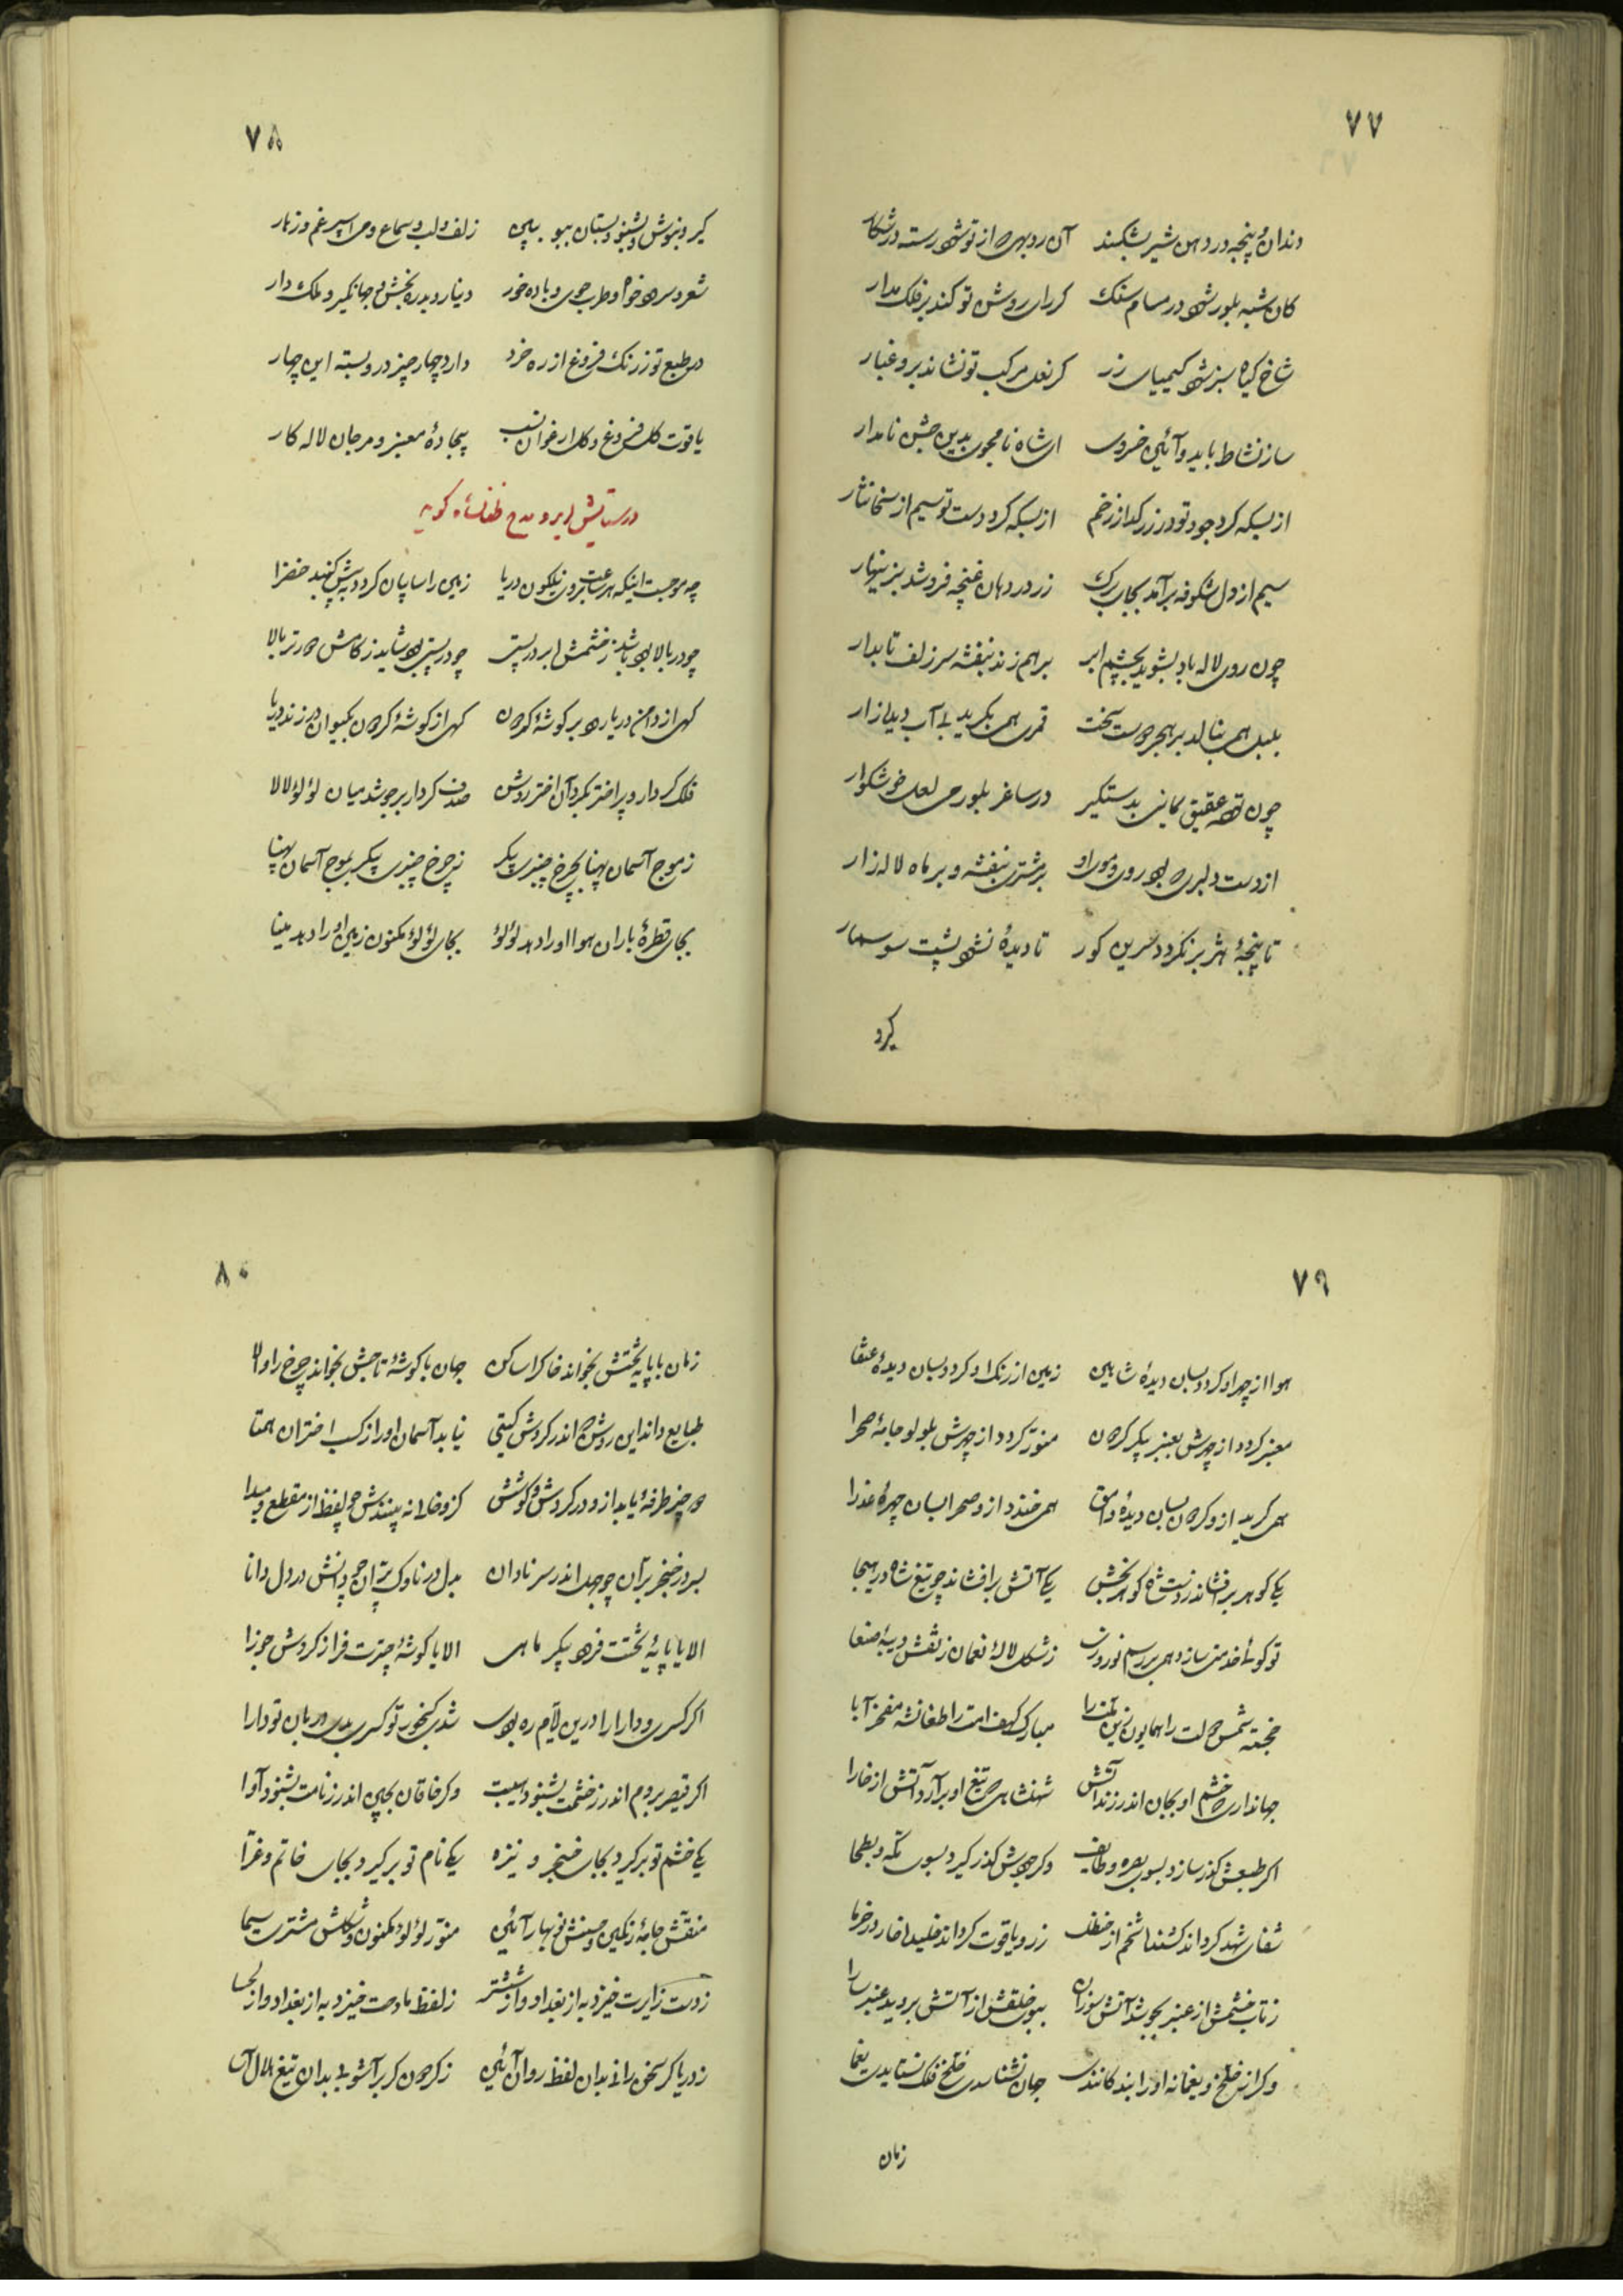 ۷۷
دندان و پنجه در دهن شیر بشکند آن روبهی که از تو شود رسته در شکار
کان شبه بلور شود در مسام سنک کر رای روشن تو کند بر فلک مدار
شاخ کیاه سبز شود کیمیای زر کر نعل مرکب تو نشاند برو غبار
ساز نشاط باید و آئین خسروی ای شاه نامجوی بدین جشن نامدار
از بسکه کرد جود تو در زر کداز زخم از بسکه کرد دست تو سیم از سخا نثار
سیم از دل شکوفه برآمد بجای برک زر در دهان غنچه فرو شد بزینهار
چون روی لاله باد بشوید بچشم ابر برهم زند بنفشه سر زلف تابدار
بلبل همی بنالد بر هجر دوست سخت قمری همی بکرید بی آب دیده زار
چون توده عقیق یمانی بدستکیر در ساغر بلور می لعل خوشکوار
از دست دلبری که بود روی و موی او بر مشتری بنفشه و بر ماه لاله زار
تا پنجهٔ هژبر نکردد سرین کور تا دیدهٔ نشود پشت سوسمار
کیرد
۷۸
کیر و بنوش و بشنو و بستان ببو ببین زلف و لب و سماع و می اسپرغم و نکار
شعر و سرود خواه و طرب جوی و باده خور دینار و بدره بخش و جهانکیر و ملک دار
می طبع تو ز رنک فروغ از ره خرد دارد چهار چیز درو بسته این چهار
یاقوت کل فروغ و کل ارغوان نسب بیجادهٔ معنبر و مرجان لاله کار
در ستایش ابر و مدح طغانشاه کوید
چه موجست اینکه هر ساعت بروی نیلکون دریا زمین را سایبان کردد به پیش کنبد خضرا
چو در بالا بود باشد ز خشمش ابر در پستی چو در پستی بود شاید ز کامش در تر بالا
کهی از دامن دریا رود بر کوشهٔ کردون کهی از کوشهٔ کردون بکیوان در زند دریا
فلک کردار و پر اختر بکرد آن اختر روشن صدف کردار بر جوشد میان لؤلؤ لالا
ز موج آسمان پهنا بچرخ چنبری پیکر ز چرخ چنبری پیکر بموج آسمان پهنا
بجای قطرهٔ باران هوا او را دهد لؤلؤ بجای لؤلؤ مکنون زمین او را دهد مینا
۷۹
هوا از چهر او کردد بسان دیدهٔ شاهین زمین از رنک او کردد بسان دیدهٔ عنقا
معنبر کردد از چهرش بعنبر پیکر کردون منور کردد از چهرش بلولو جامهٔ صحرا
همی کرید ازو کردون بسان دیدهٔ وامق همی خندد ازو صحرا بسان چهرهٔ عذرا
یکی کوهر برافشاند ز دست شاه کوهربخش یکی آتش برافشاند چو تیغ شاه در هیجا
تو کوئی خدمتی سازد همی بر رسم نوروزی ز شکل لالهٔ نعمان ز نقش دیبهٔ صنعا
خجسته شمس دولت را همایون زین ملت را مبارک کهف امت را طغانشه مفخر آبا
جهانداری که خشم او بجان اندر زند آتش شهنشاهی که تیغ او برآرد آتش از خارا
اکر طبعش کذر سازد بسوی بصره و طایف وکر جودش کذر کیرد بسوی مکه و بطحا
شفای شهد کرداند کشنده شخم از حنظل زر و یاقوت کرداند خلیده خار در خرما
ز تاب خشمش از عنبر بجوشد آتش سوزان ببوی خلقش از آتش بروید عنبر سارا
وکر اندر خلخ و یغما نه او را بندکانندی جهان نشناسدی خلخ فلک نستایدی یغما
زمان
۸۰
زمان با پایه تختش بخواند خاک را ساکن جهان با کوشهٔ تاجش بخواند چرخ را والا
طبایع داند این روشن که اندر کردش کیتی نیابد آسمان او را ز کسب اختران همتا
چه چیز طرفهٔ یابد ازو در کردش و کوشش کزو خامانه بپسندش چو لفظ از مقطع و مبدا
بسر در خنجر بران چو جهل اندر سر نادان بدل در ناوک پران چو دانش در دل دانا
الا یا پایهٔ تختت فرود پیکر ماهی الا یا کوشهٔ چترت فراز کردش جوزا
اکر کسری و دارا را درین ایام ره بودی شدی کنجور تو کسری بدی دربان تو دارا
اکر قیصر بروم اندر ز خشمت بشنود آسیبت وکر خاقان بچین اندر ز نامت بشنود آوا
یکی خشم تو برکیرد بجای خنجر و نیزه یکی نام تو برکیرد بجای خاتم و غرا
منقش جامهٔ رنکین و حسنش نوبهار آئین منور لؤلؤ مکنون و شکلش مشتری سیما
ز دست زایرت خیزد به از بغداد و از ششتر ز لفظ مادحت خیزد به از بغداد و از لحسا
ز دریا کر سخن رانی بدان لفظ روان آئین ز کردون کر برآشوبی بدان تیغ هلال آسا